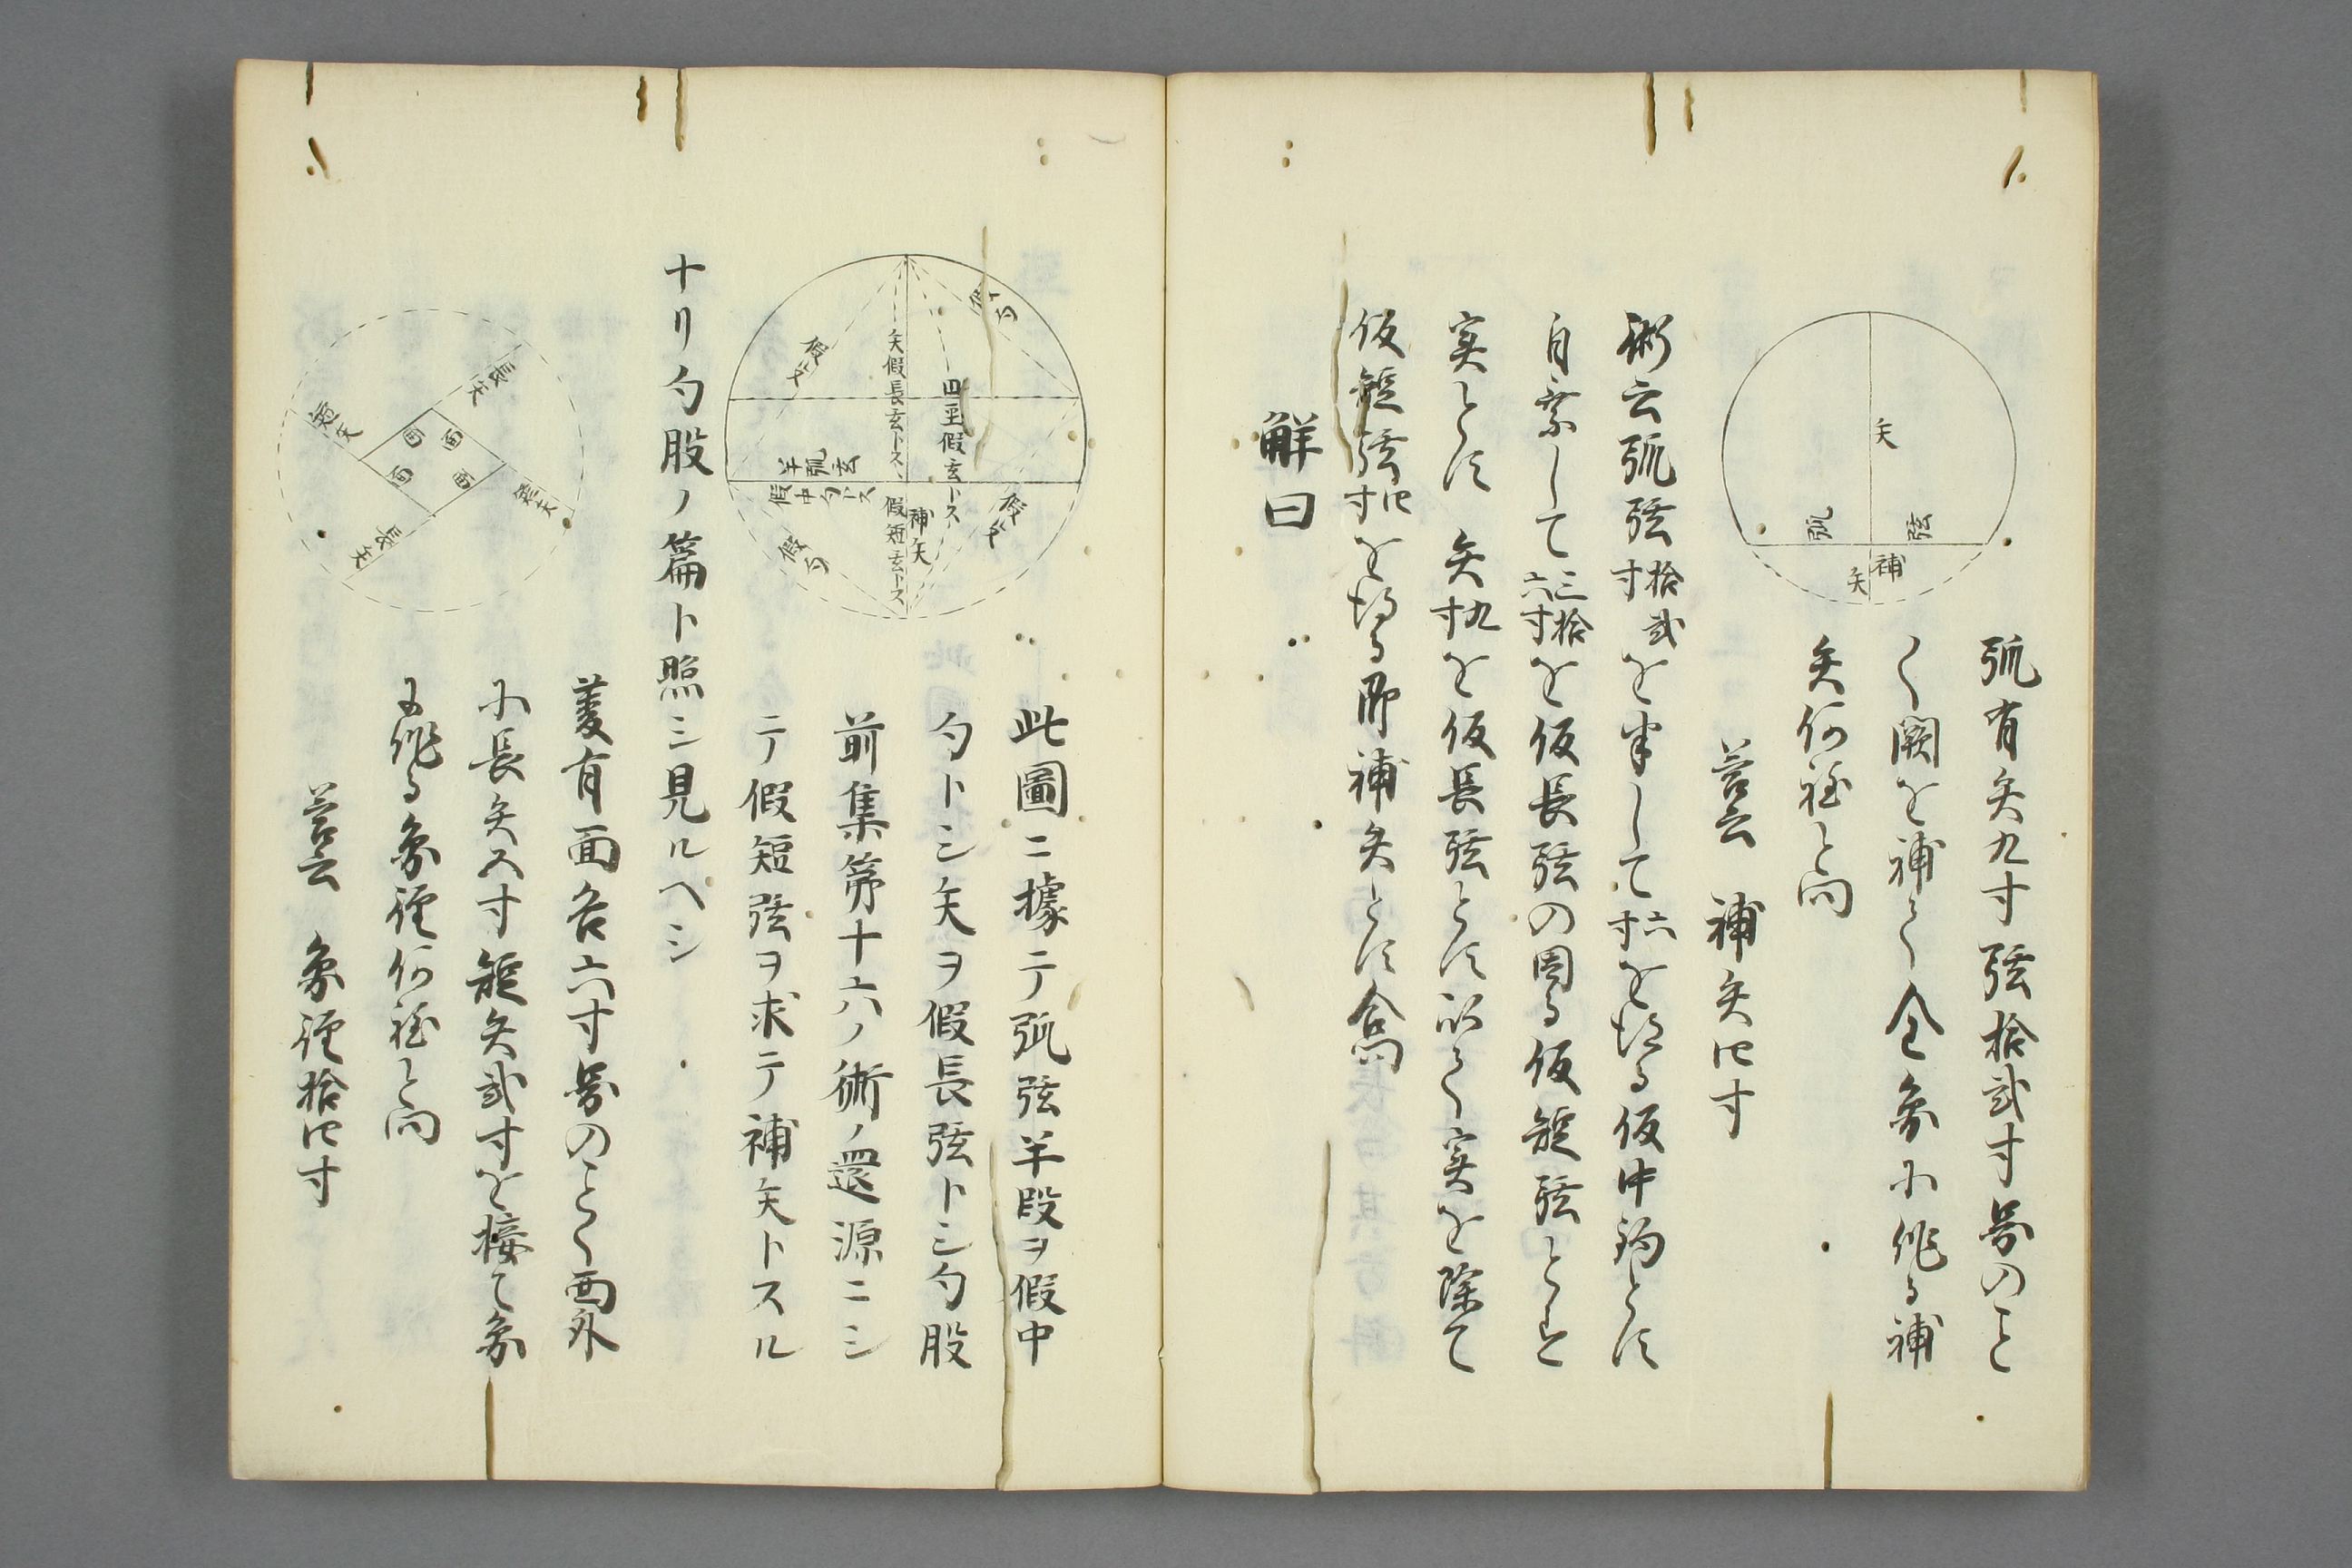 弧有矢九寸弦拾弐寸図のこと
く闕を補て全象に作る補
矢何程と問
答云　補矢四寸
術云弧弦拾弐寸を半して六寸を得る仮中鈎とす
自乗して三拾六寸を仮長弦の因る仮短弦とし
実とす　矢九寸を仮長弦とす以て実を除て
仮短弦四寸を得る即補矢とす合問
解曰
矢
弧
弦
補
矢
此圖ニ據テ弧弦半段ヲ假中
勾トシ矢ヲ假長弦トシ勾股
前集第十六ノ術ノ還源ニシ
テ假短弦ヲ求テ補矢トスル
ナリ勾股ノ篇ト照シ見ルヘシ
假勾
假
矢假長玄トス
四 假玄トス
半弧玄
假中勾トス
假短玄トス
補矢
假勾
假
菱有面各六寸図のことく面外
に長矢 寸短矢弐寸を接て象
に作る象径何程と問
答云　象径拾四寸
長矢
短矢
面
面
面
面
短矢
長矢